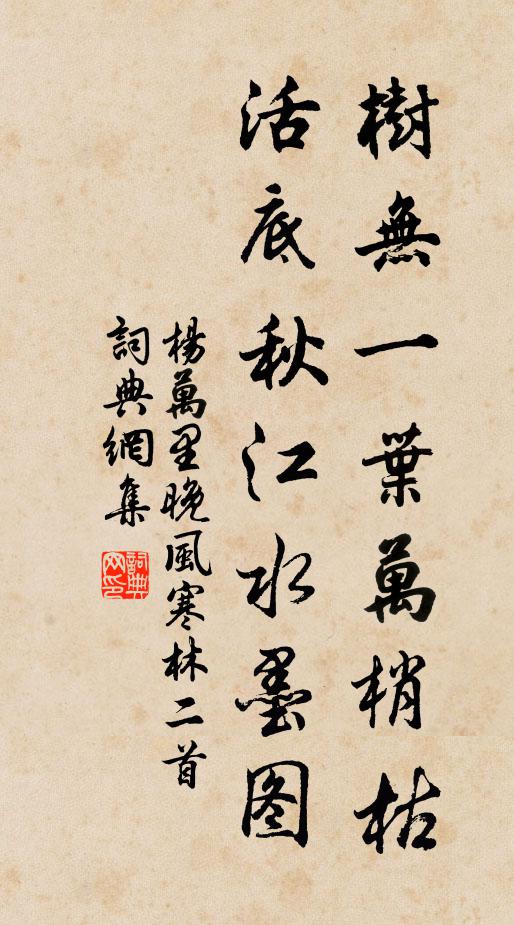 樹無一葉萬梢枯
活底秋江水墨图
楊萬里晚風寒林二首
詞典網集
詞典
网印